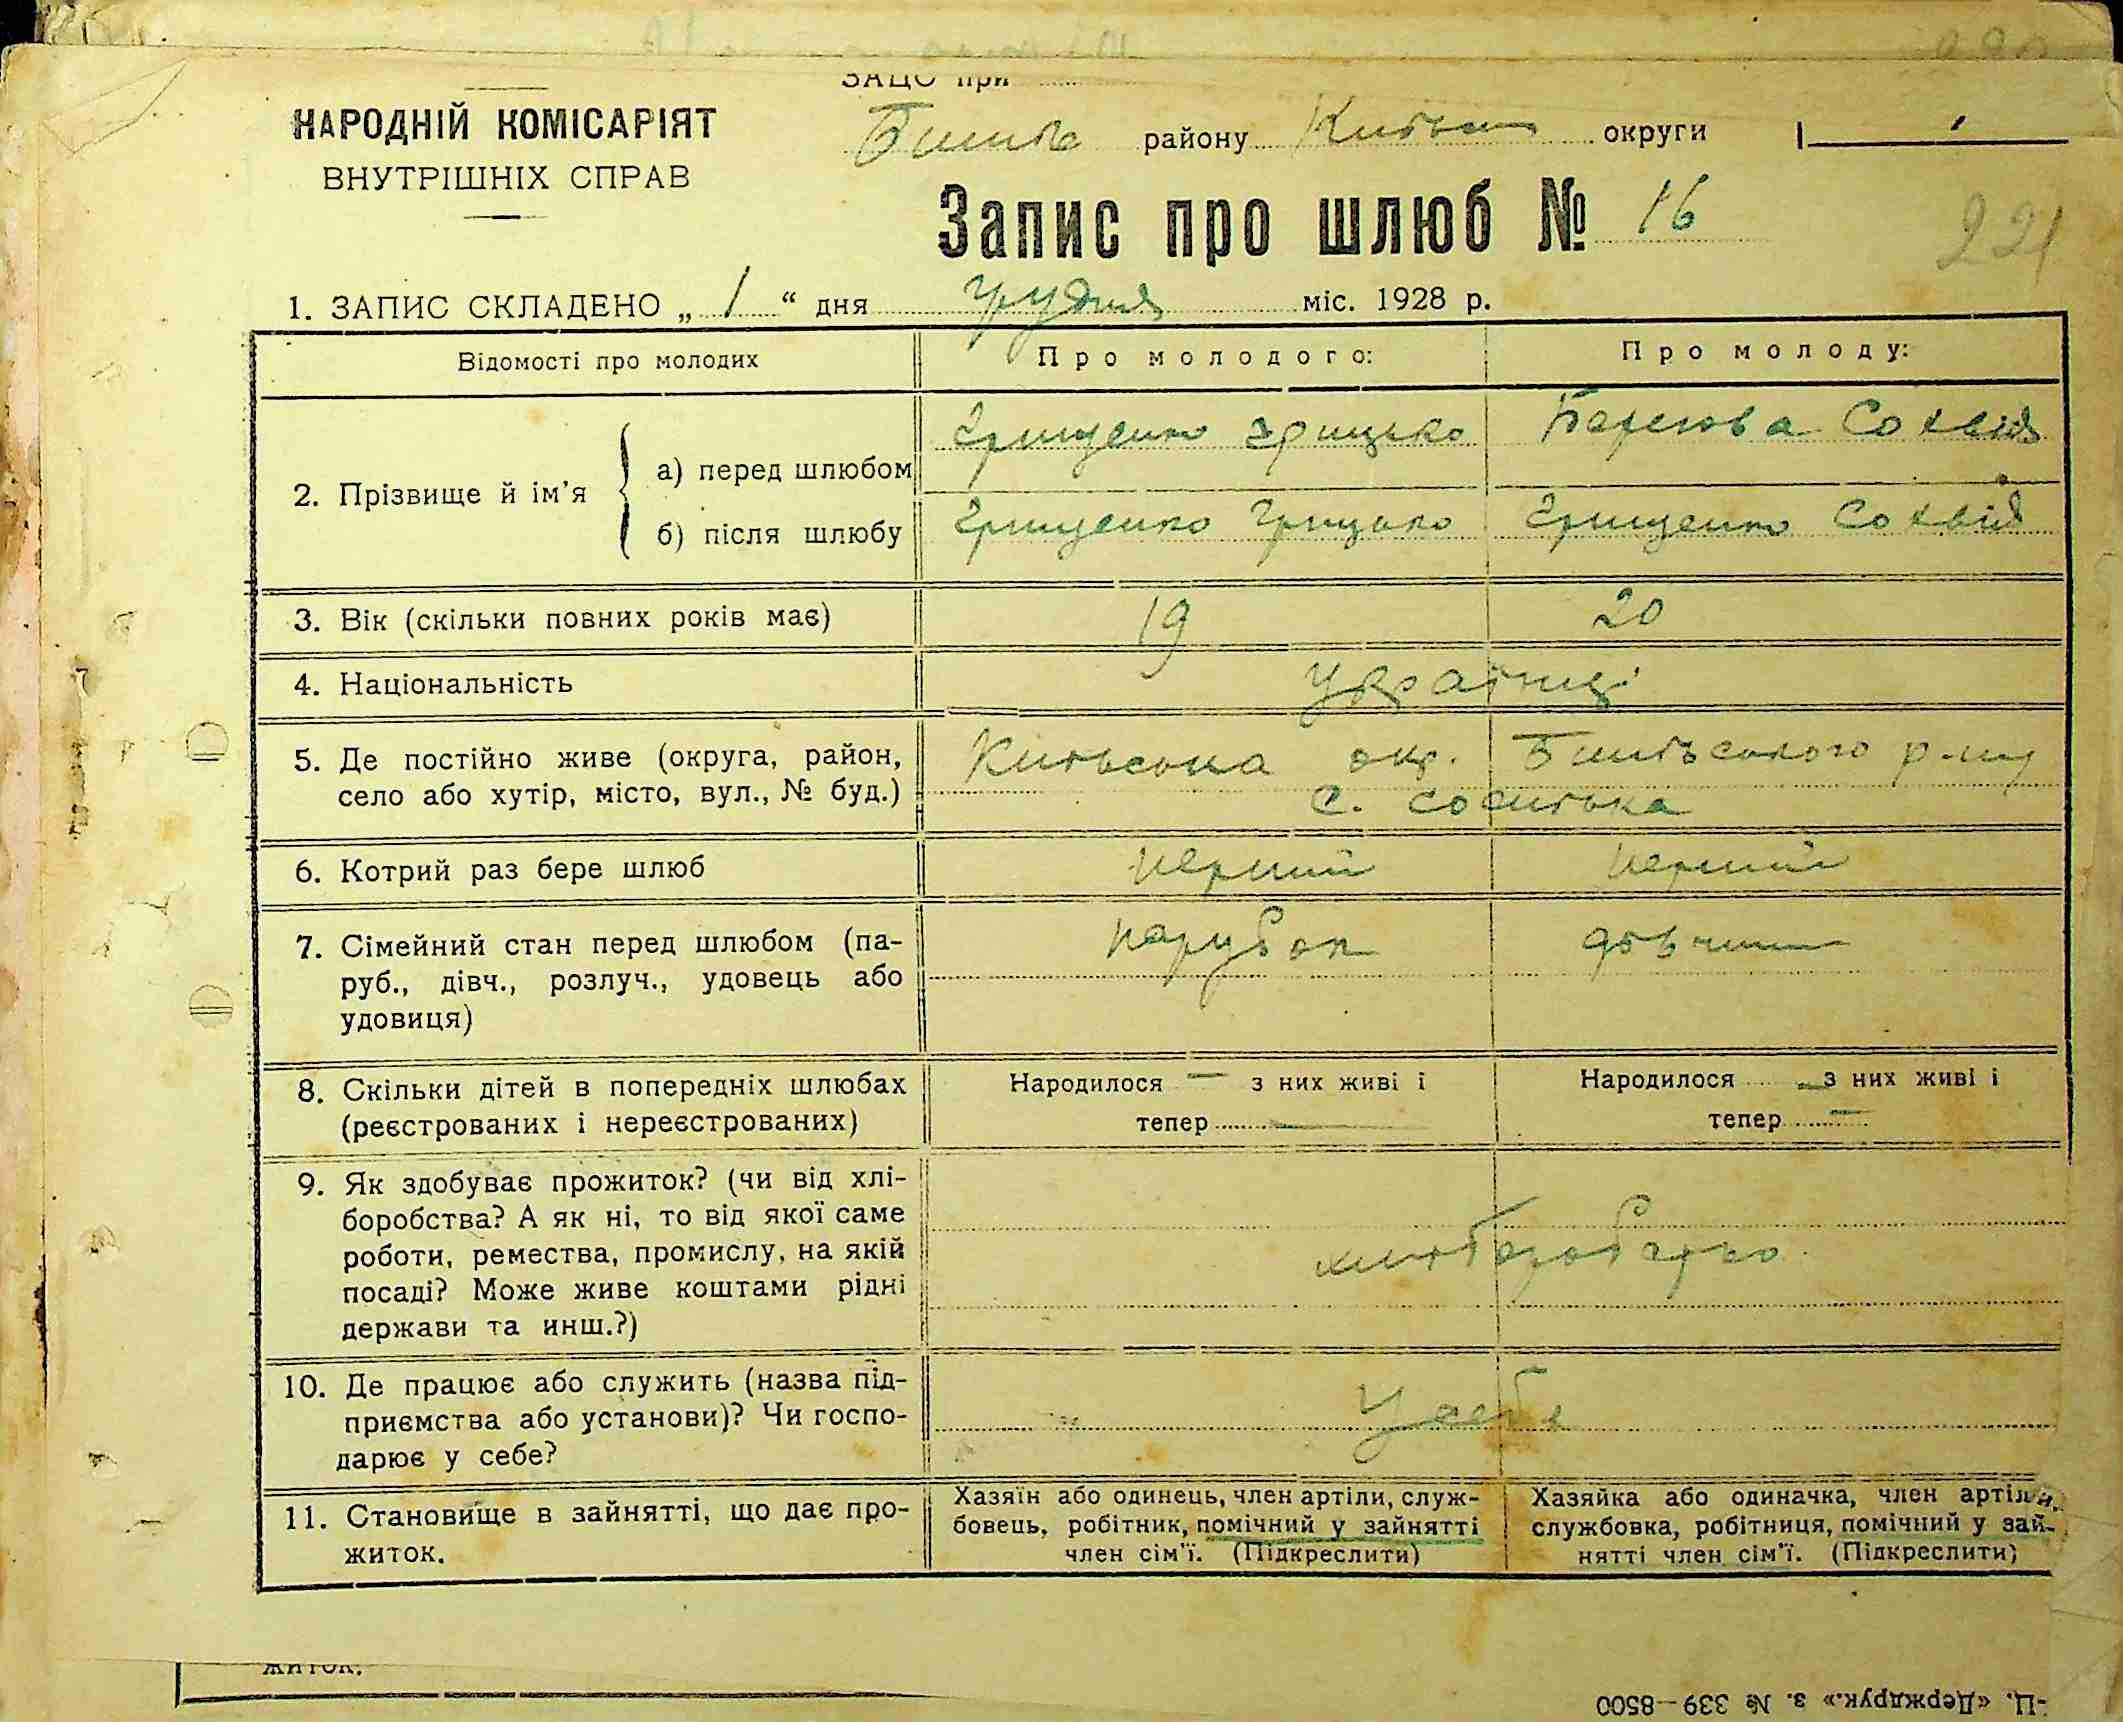 ЗАЦС при
НАРОДНІЙ КОМІСАРІЯТ
ВНУТРІШНІХ СПРАВ
району округи
Запис про шлюб № 16
221
1. ЗАПИС СКЛАДЕНО „ 1 “ дня грудня міс. 1928 р.
Відомості про молодих Про молодого: Про молоду:
2. Прізвище й ім'я
а) перед шлюбом Грищенко Грицько Сохвія
б) після шлюбу Грищенко Грицько Грищенко Сохвія
3. Вік (скільки повних років має) 19 20
4. Національність Українці
5. Де постійно живе (округа, район, Київська окр.
село або хутір, місто, вул., № буд.) с.
6. Котрий раз бере шлюб перший перший
7. Сімейний стан перед шлюбом (па- парубок
руб., дівч., розлуч., удовець або
удовиця)
8. Скільки дітей в попередніх шлюбах Народилося — з них живі і Народилося — з них живі і
(реєстрованих і нереєстрованих) тепер — тепер —
9. Як здобуває прожиток? (чи від хлі-
боробства? А як ні, то від якої саме
роботи, ремества, промислу, на якій
посаді? Може живе коштами рідні
держави та инш.?)
10. Де працює або служить (назва під-
приємства або установи)? Чи госпо- У себе
дарює у себе?
11. Становище в зайнятті, що дає про-
житок.
Хазяїн або одинець, член артіли, служ-
бовець, робітник, помічний у зайнятті
член сім'ї. (Підкреслити)
Хазяйка або одиначка, член артіли,
службовка, робітниця, помічний у зай-
нятті член сім'ї. (Підкреслити)
житок.
«Держдрук.» з. № 339—8500